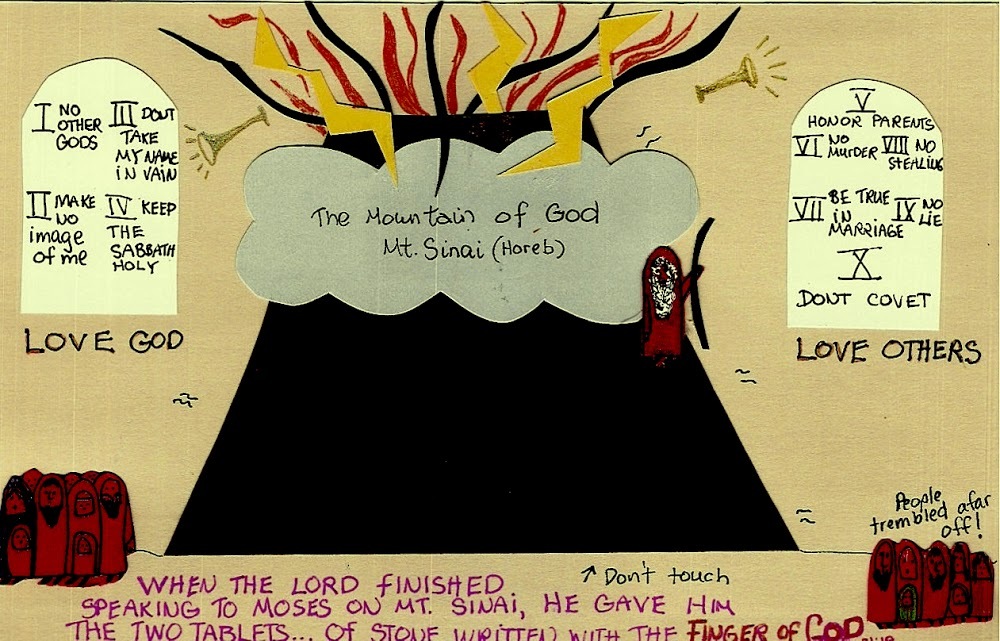 I NO OTHER GODS
II MAKE NO image of me
III DONT TAKE MY NAME IN VAIN
IV KEEP THE SABBATH HOLY
LOVE GOD
The Mountain of God
Mt. Sinai (Horeb)
V
HONOR PARENTS
VI NO MURDER
VIII NO STEALING
VII BE TRUE IN MARRIAGE
IX NO LIE
X
DONT COVET
LOVE OTHERS
People
trembled afar
off!
↑ Don't touch
WHEN THE LORD FINISHED
SPEAKING TO MOSES ON MT. SINAI, HE GAVE HIM
THE TWO TABLETS... OF STONE WRITTEN WITH THE FINGER OF GOD